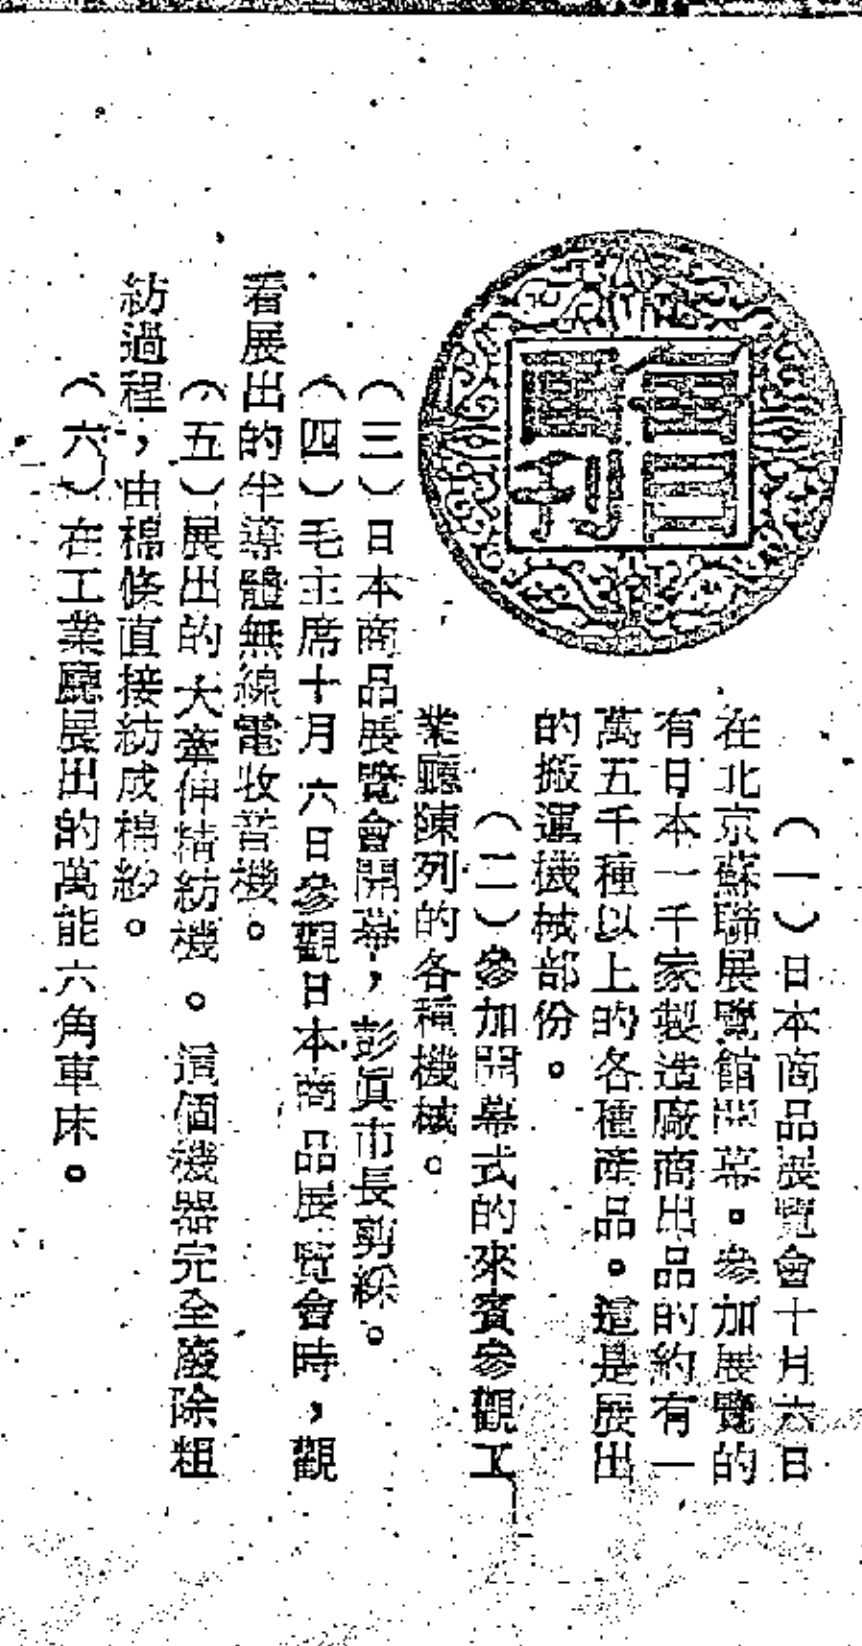 畫刊
（一）日本商品展覽會十月六日
在北京蘇聯展覽館開幕。參加展覽的
有日本一千家製造廠商出品的約有一
萬五千種以上的各種產品。這是展出
的搬運機械部份。
（二）參加開幕式的來賓參觀工
業廳陳列的各種機械。
（三）日本商品展覽會開幕，彭眞市長剪綵。
（四）毛主席十月六日參觀日本商品展覽會時，觀
看展出的半導體無線電收音機。
（五）展出的大牽伸精紡機。這個機器完全廢除粗
紡過程，由棉條直接紡成棉紗。
（六）在工業廳展出的萬能六角車床。